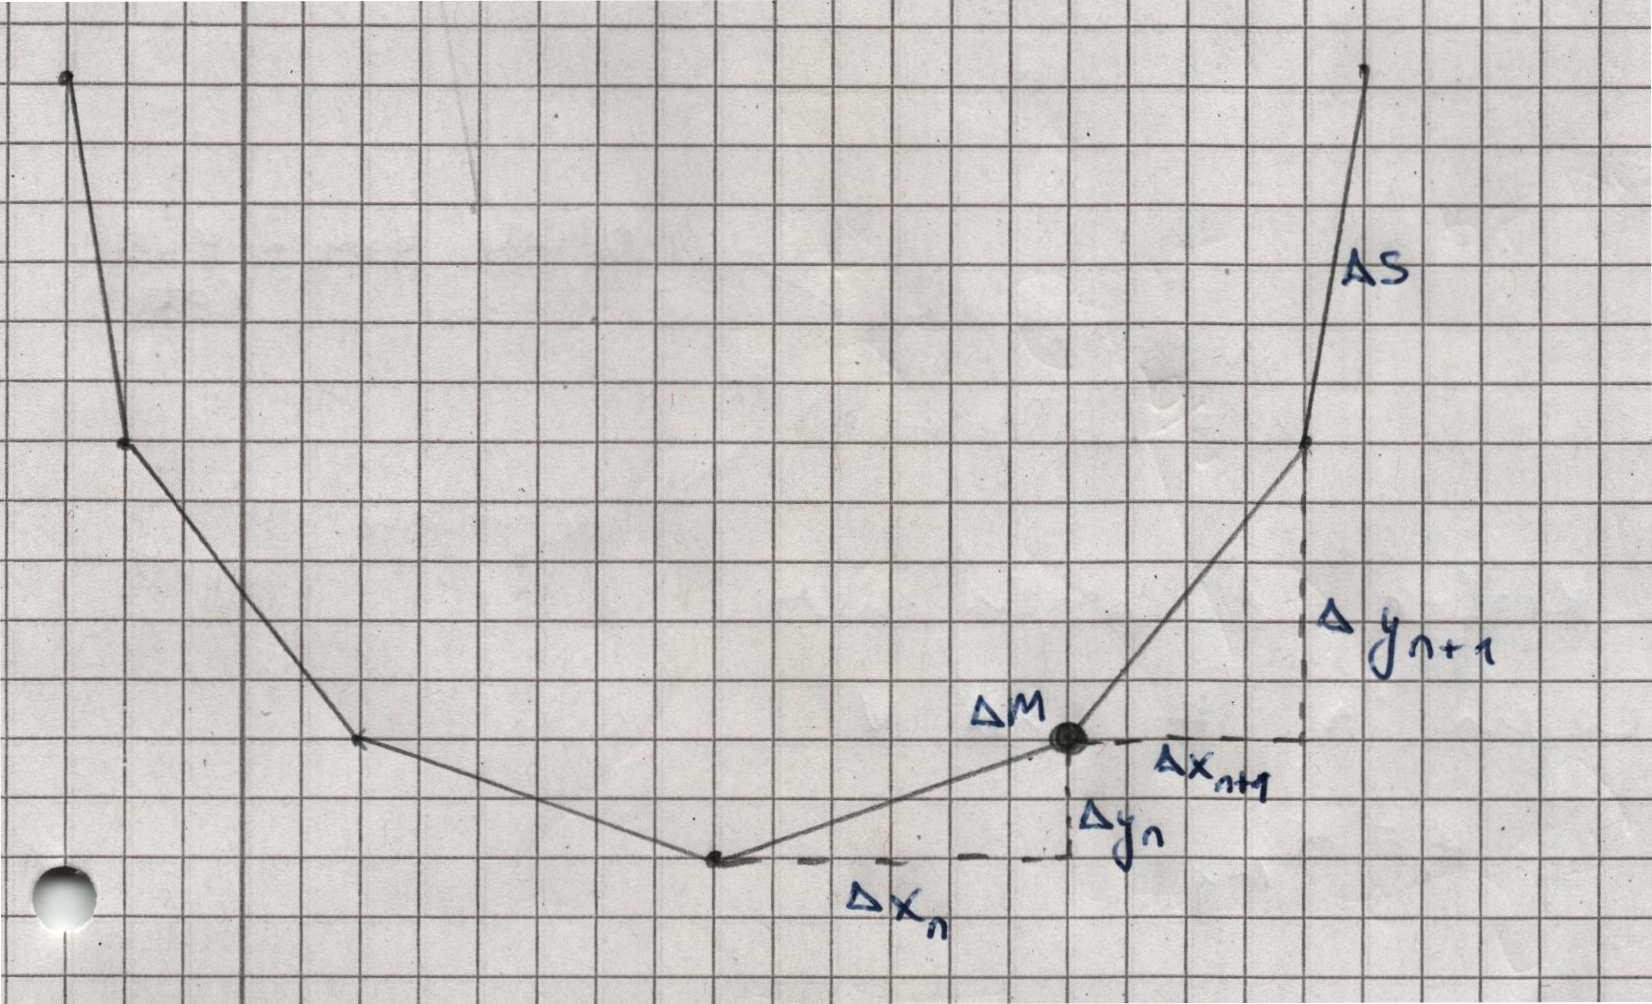 ΔS
Δy_{n+1}
ΔM
Δx_{n+1}
Δy_n
Δx_n